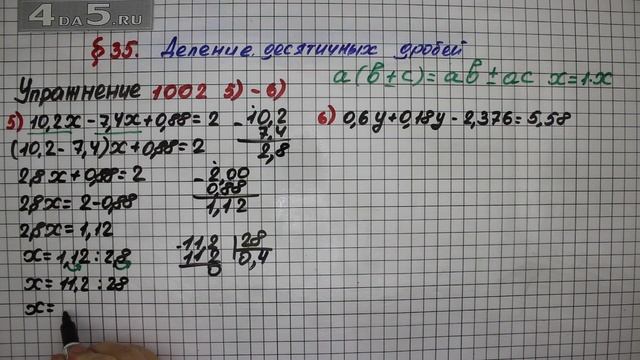 4DA5.RU
§35. Деление десятичных дробей
Упражнение 1002 5)-6)
a(b±c)=ab±ac x=1·x
5) 10,2x-7,4x+0,88=2
(10,2-7,4)x+0,88=2
2,8x+0,88=2
2,8x=2-0,88
2,8x=1,12
x=1,12:2,8
x=11,2:28
x=
-10,2
7,4
2,8
-2,00
0,88
1,12
-11,2 28
11 2 0,4
0
6) 0,6y+0,18y-2,376=5,58